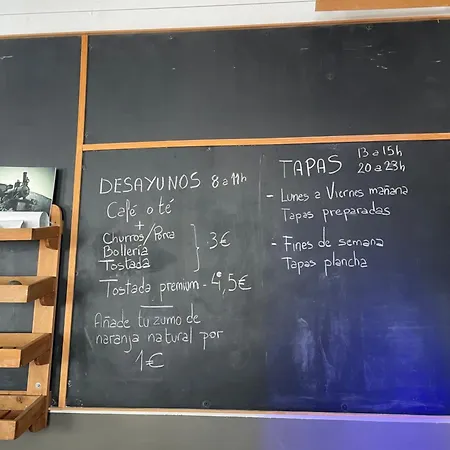 DESAYUNOS 8 a 11h
Café o té
+
Churros/Porra
Bollería
Tostada
3€
Tostada premium - 4,5€
Añade tu zumo de
naranja natural por
1€
TAPAS 13 a 15h
20 a 23h
- Lunes a Viernes mañana
Tapas preparadas
- Fines de semana
Tapas plancha